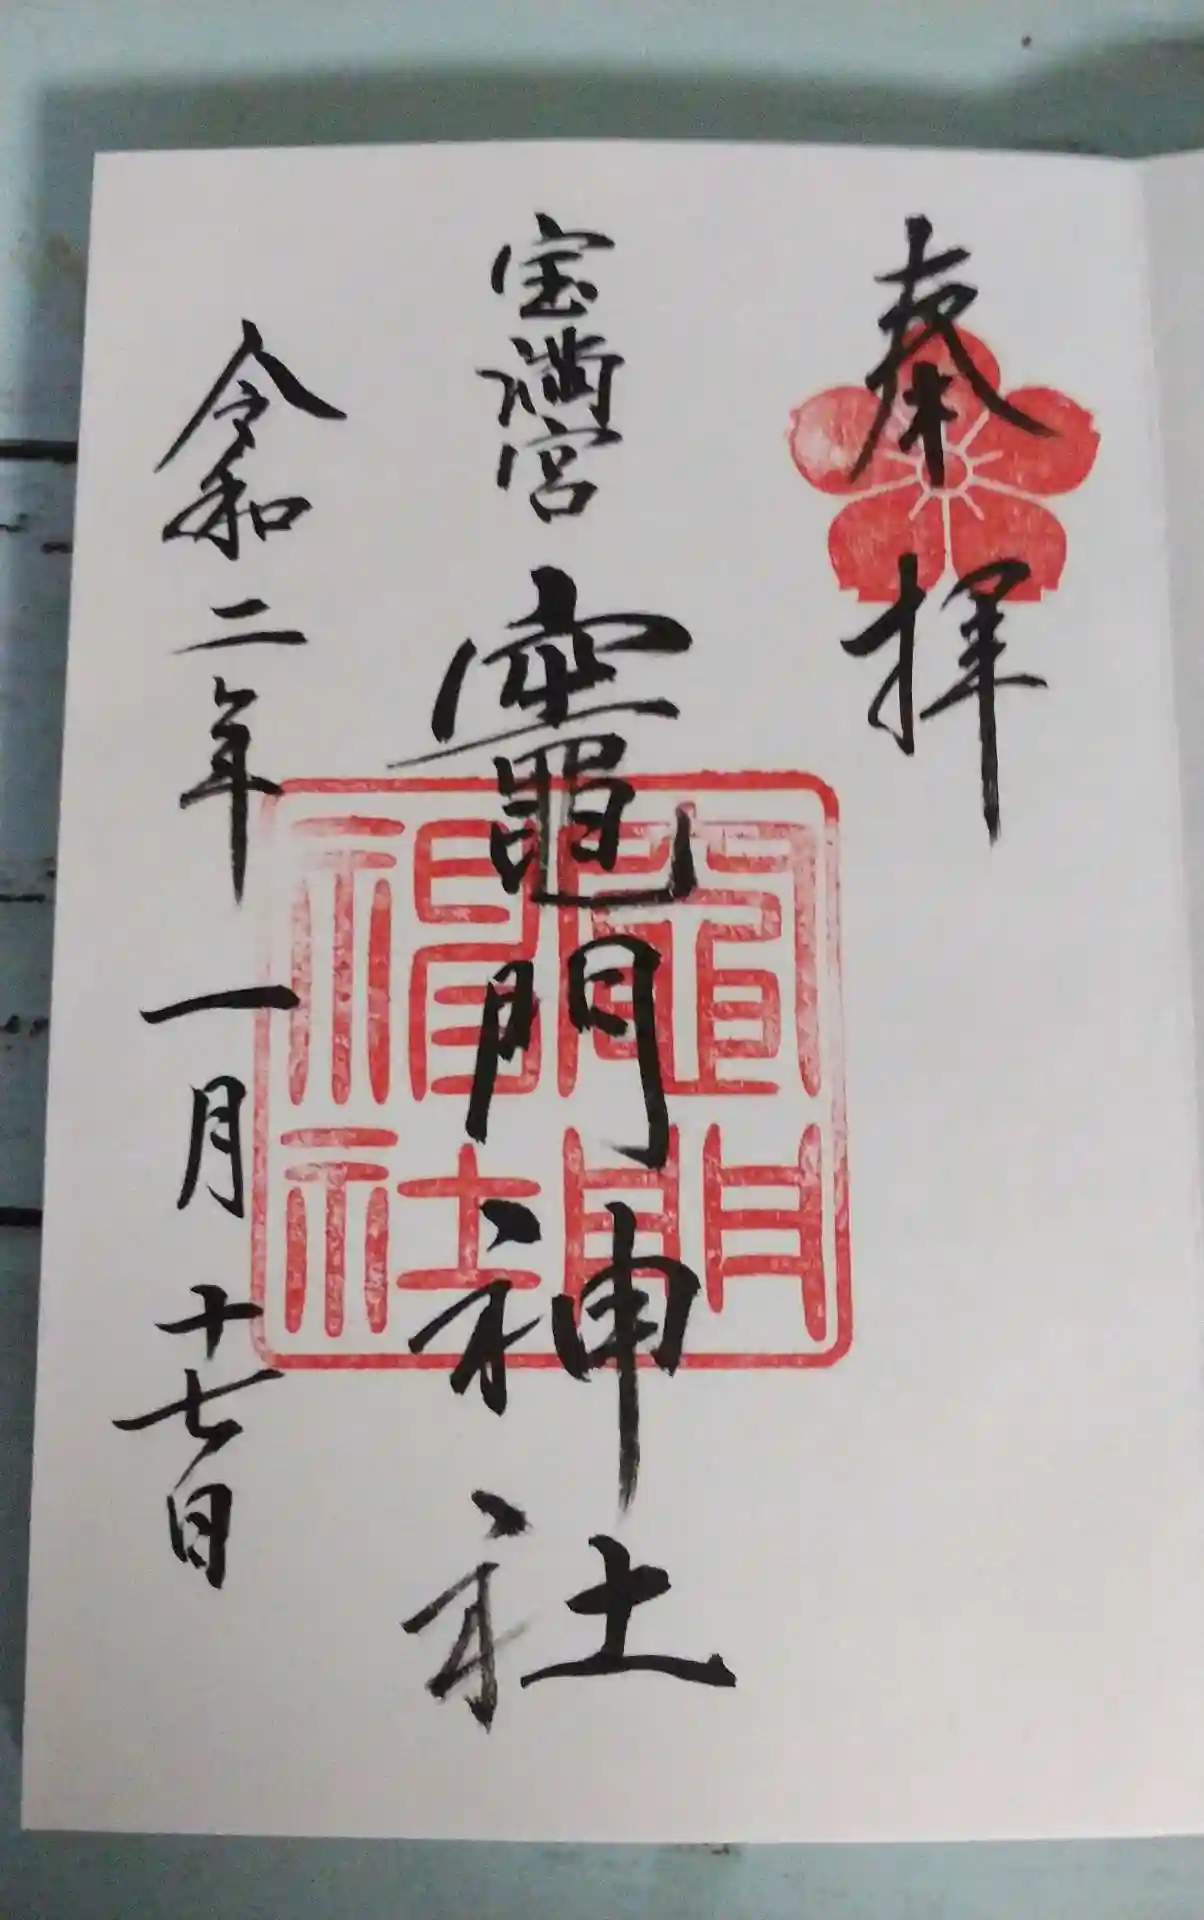 奉拝
宝満宮 竈門神社
令和二年一月十七日
竈門
神社